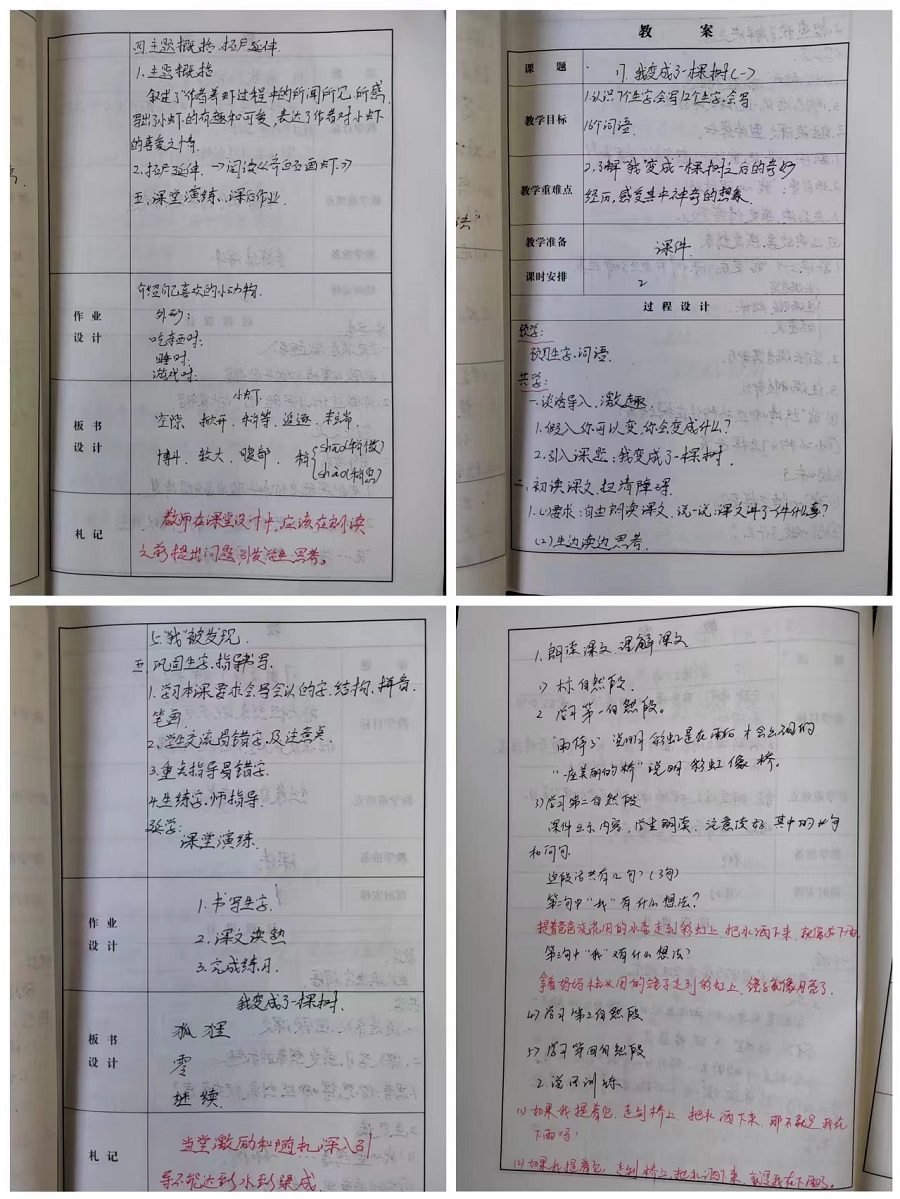 四.主题概括,拓展延伸.
1.主题概括
叙述了作者养虾过程中的所闻所见所感.
写出了小虾的有趣和可爱,表达了作者对小虾
的喜爱之情.
2.拓展延伸.→阅读《齐白石画虾》
五.课堂演练、课后作业.
作 业
设 计
介绍自己喜欢的小动物.
外形:
吃东西时:
睡时:
游戏时:
板 书
设 计
小虾
空隙 掀开 稍等 追逐
搏斗 较大 腹部 稍{shāo(稍微)
shào(稍息)
札 记
教师在课堂设计中,应该在朗读
之前提出问题,引发思考。
教 案
课 题
17.我变成了一棵树(一)
教学目标
1.认识7个生字,会写12个生字,会写
16个词语.
教学重难点
2.了解“我”变成一棵树之后的奇妙
经历,感受其中神奇的想象.
教学准备
课件.
课时安排
2
过 程 设 计
预学:
预习生字.词语.
共学:
一.谈话导入,激趣
1.假入你可以变,你会变成什么?
2.引入课题:我变成了一棵树.
二.初读课文,扫清障碍.
1.(1)要求:自由朗读课文,说一说:课文讲了一件什么事?
(2)生边读边思考.
5.“我”被发现.
五.巩固生字.指导书写.
1.学习本课要求会写会认的字.结构.拼音.
笔画.
2.学生交流易错字及注意点.
3.重点指导易错字.
4.生练字,师指导.
延学:
课堂演练.
作 业
设 计
1.书写生字.
2.课文读熟
3.完成练习.
板 书
设 计
我变成了一棵树.
狐狸
零
继续.
札 记
当堂激励和随札深入引
导不能达到水到渠成.
1.朗读课文 理解课文
1)标自然段.
2 学习第一自然段。
“雨停了”说明了彩虹是在雨后才会出现的
“一座美丽的桥”说明彩虹像桥。
3)学习第二自然段
课件出示内容,学生朗读,注意读好其中的
和问句.
这段话共有几句?(3句)
第二句中“我”有什么想法?
提着爸爸浇花用的水壶走到彩虹上,把水洒下来,就像在下雨.
第三句中“我”又有什么想法?
拿着妈妈梳头用的镜子走到彩虹上,镜子就像月亮了.
4)学习第三自然段
5)学习第四自然段
2.说话训练
(1)如果我提着它,走到桥上,把水洒下来,那不就是我在
下雨吗?
(2)如果我提着它,走到桥上,把水洒下来,就是我在下雨了.